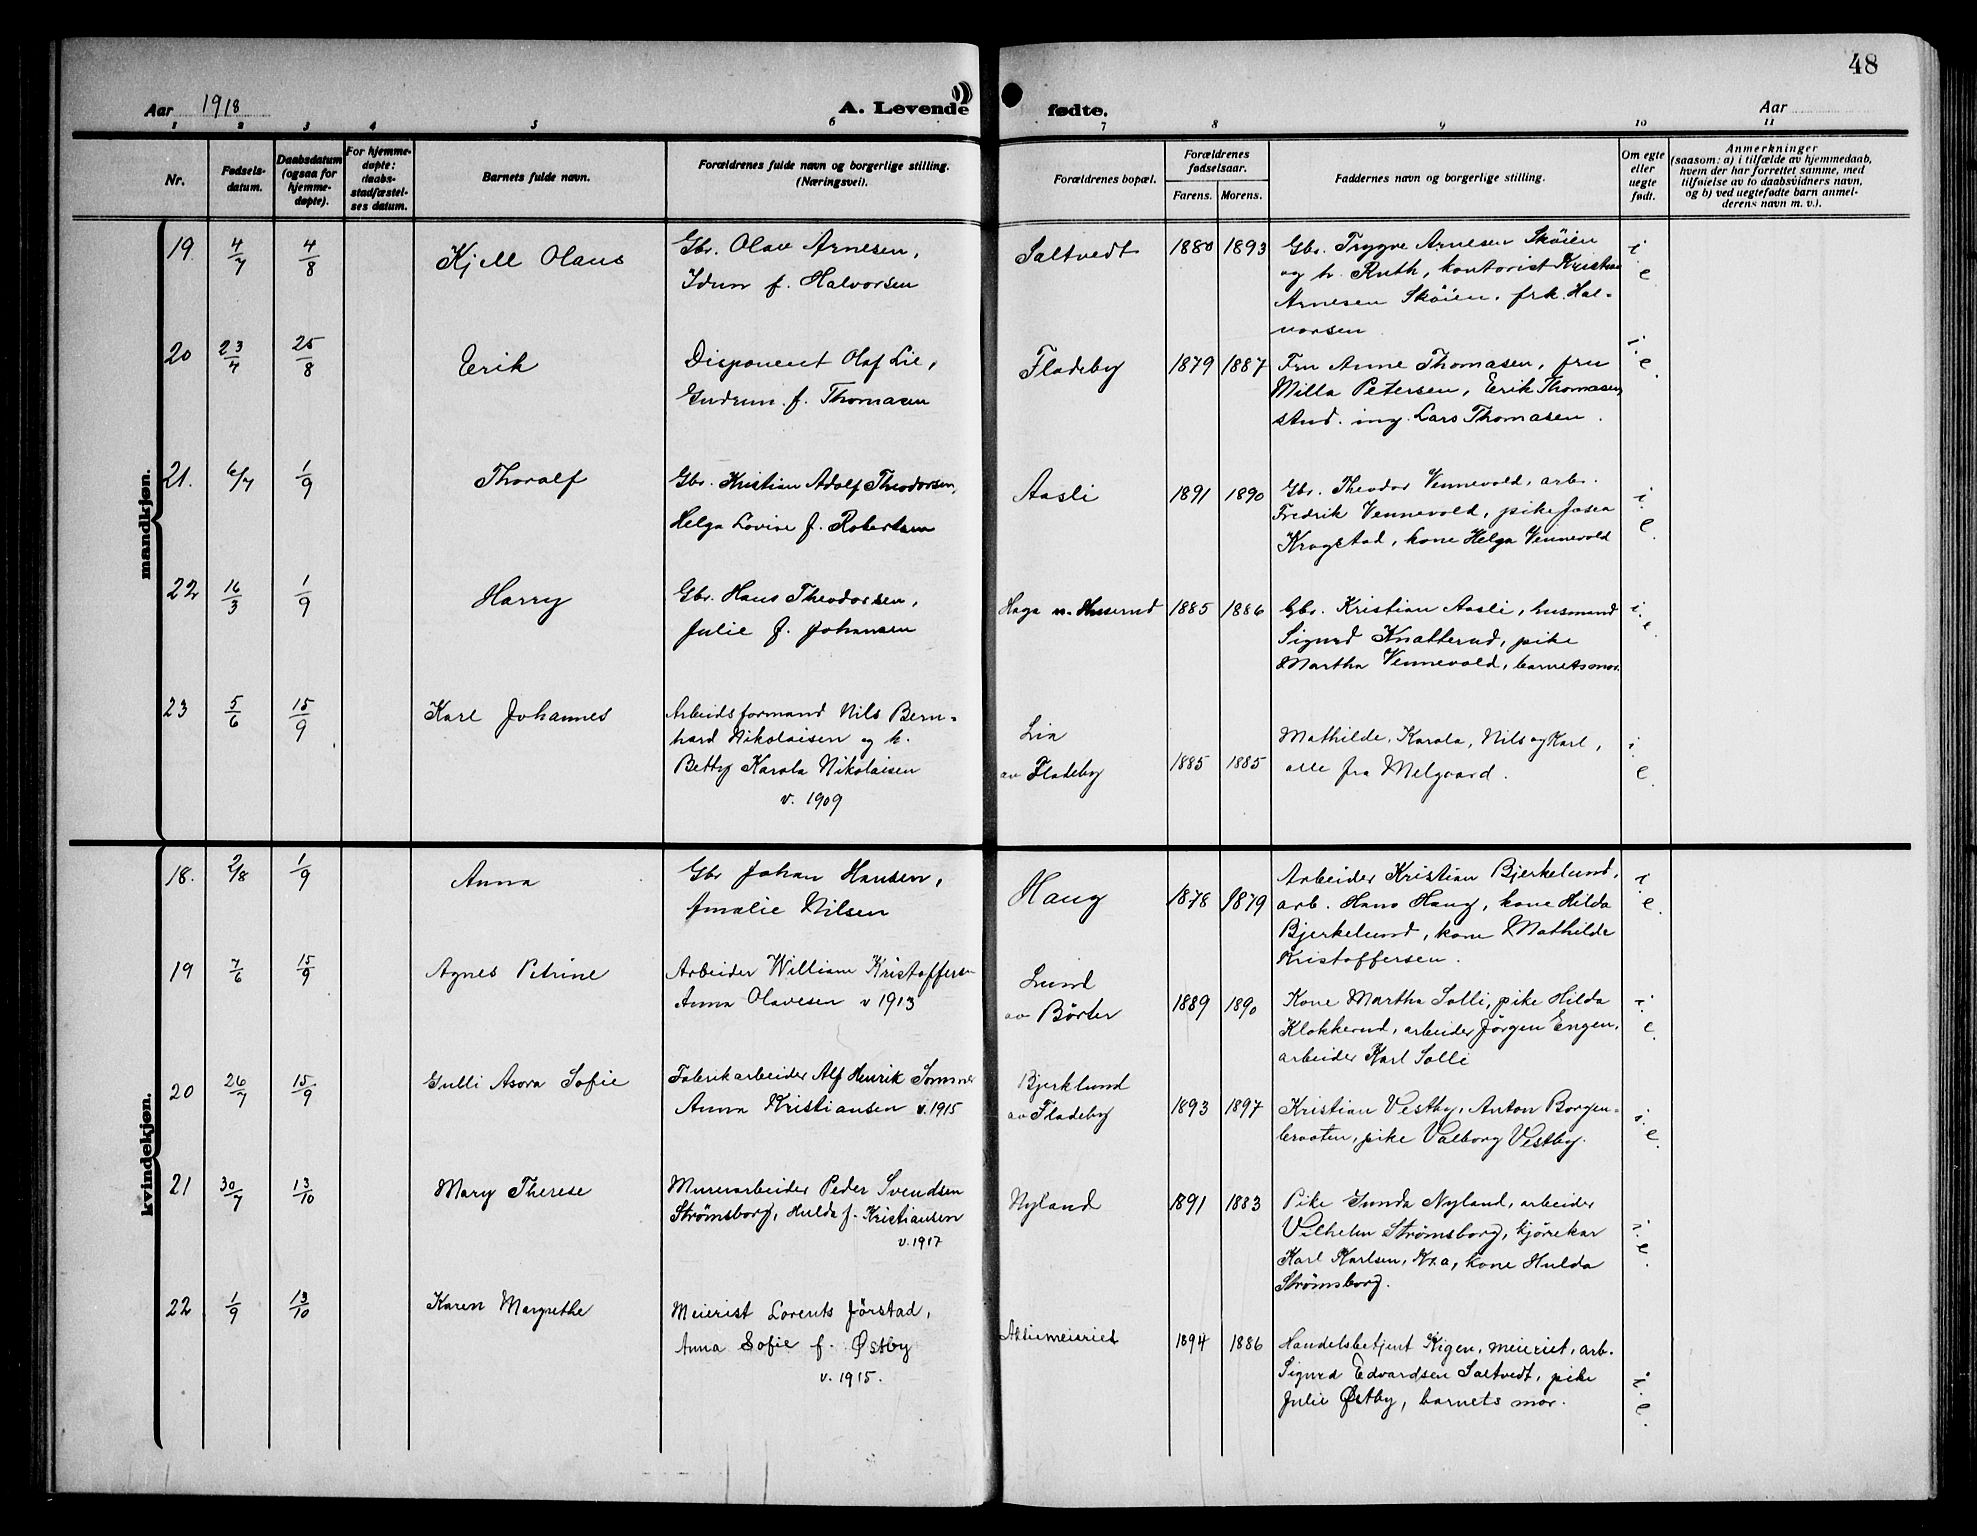 48
Aar 1918
A. Levende fødte.
Aar
1 2 3 4 5 6 7 8 9 10 11
Nr.
Fødsels-
datum.
Daabsdatum
(ogsaa for
hjemme-
døpte).
For hjemme-
døpte:
daabs-
stadfæstel-
ses datum.
Barnets fulde navn.
Forældrenes fulde navn og borgerlige stilling.
(Næringsvei).
Forældrenes bopæl.
Forældrenes
fødselsaar.
Farens. Morens.
Faddernes navn og borgerlige stilling.
Om egte
eller
uegte
født.
Anmerkninger
(saasom: a) i tilfælde av hjemmedaab,
hvem der har forrettet samme, med
tilføielse av to daabsvidners navn,
og b) ved uegtefødte barn anmel-
derens navn m. v.).
mandkjøn.
19. 4/7 4/8 Kjell Olaus
Gbr. Olav Arnesen,
Idun f. Halvorsen
Saltvedt 1880 1893
Gbr. Trygve Arnesen Skøien
og h. Ruth, kontorist Kristian
Arnesen Skøien, frk. Hal-
vorsen
i. e
20 23/4 25/8 Erik
Disponent Olaf Lie,
Gudrun f. Thomasen
Fladeby 1879 1887
Fru Anne Thomasen, fru
Milla Petersen, Erik Thomasen,
stud. ing. Lars Thomasen.
i. e.
21. 6/7 1/9 Thoralf
Gbr. Kristian Adolf Theodorsen,
Helga Lovise f. Robertsen
Aasli 1891 1890
Gbr. Theodor Vennevold, arb.
Fredrik Vennevold, pike Josea
Kragstad, kone Helga Vennevold
i. e.
22 16/3 1/9 Harry
Gbr. Hans Theodorsen,
Julie f. Johansen
Haga u. Huserud 1885 1886
Gbr. Kristian Aasli, husmand
Sigurd Knatterud, pike
Martha Vennevold, barnets mor.
i. e.
23 5/6 15/9 Karl Johannes
Arbeidsformand Nils Bern-
hard Nikolaisen og h.
Betty Karola Nikolaisen
v. 1909
Lia
av Fladeby 1885 1885
Mathilde, Karola, Nils og Karl,
alle fra Melgaard.
i. e.
kvindekjøn.
18. 2/8 1/9 Anna
Gbr Johan Hansen,
Amalie Nilsen
Haug 1878 1879
Arbeider Kristian Bjerkelund,
arb. Hans Haug, kone Hilda
Bjerkelund, kone Mathilde
Kristoffersen.
i. e.
19 7/6 15/9 Agnes Petrine
Arbeider William Kristoffersen
Anna Olavesen v 1913
Lund
av Börter 1889 1890
Kone Martha Solli, pike Hilda
Klokkerud, arbeider Jörgen Engen,
arbeider Karl Solli
i. e.
20 26/7 15/9 Gulli Asora Sofie
Fabrikarbeider Alf Henrik Sommer
Anna Kristiansen v. 1915
Bjerklund
av Fladeby 1893 1897
Kristian Vestby, Anton Borgen-
braaten, pike Valborg Vestby.
i. e.
21 30/7 13/10 Mary Therese
Murerarbeider Peder Svendsen
Strømsborg, Hulda f. Kristiansen
v. 1917
Nyland 1891 1883
Pike Gunda Nyland, arbeider
Vilhelm Strømsborg, kjørekar
Karl Karlsen, Kr.a, kone Hulda
Strømsborg.
i. e.
22 1/9 13/10 Karen Margrethe
Meierist Lorents Jörstad,
Anna Sofie f. Østby
v. 1915.
Aktiemeieriet 1894 1886
Handelsbetjent Kigen, meieriet, arb.
Sigurd Edvardsen Saltvedt, pike
Julie Østby, barnets mor.
i. e.